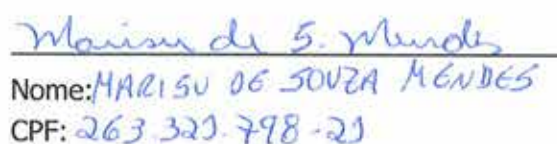 Marisu de S. Mendes
Nome: MARISU DE SOUZA MENDES
CPF: 263.321.798-21